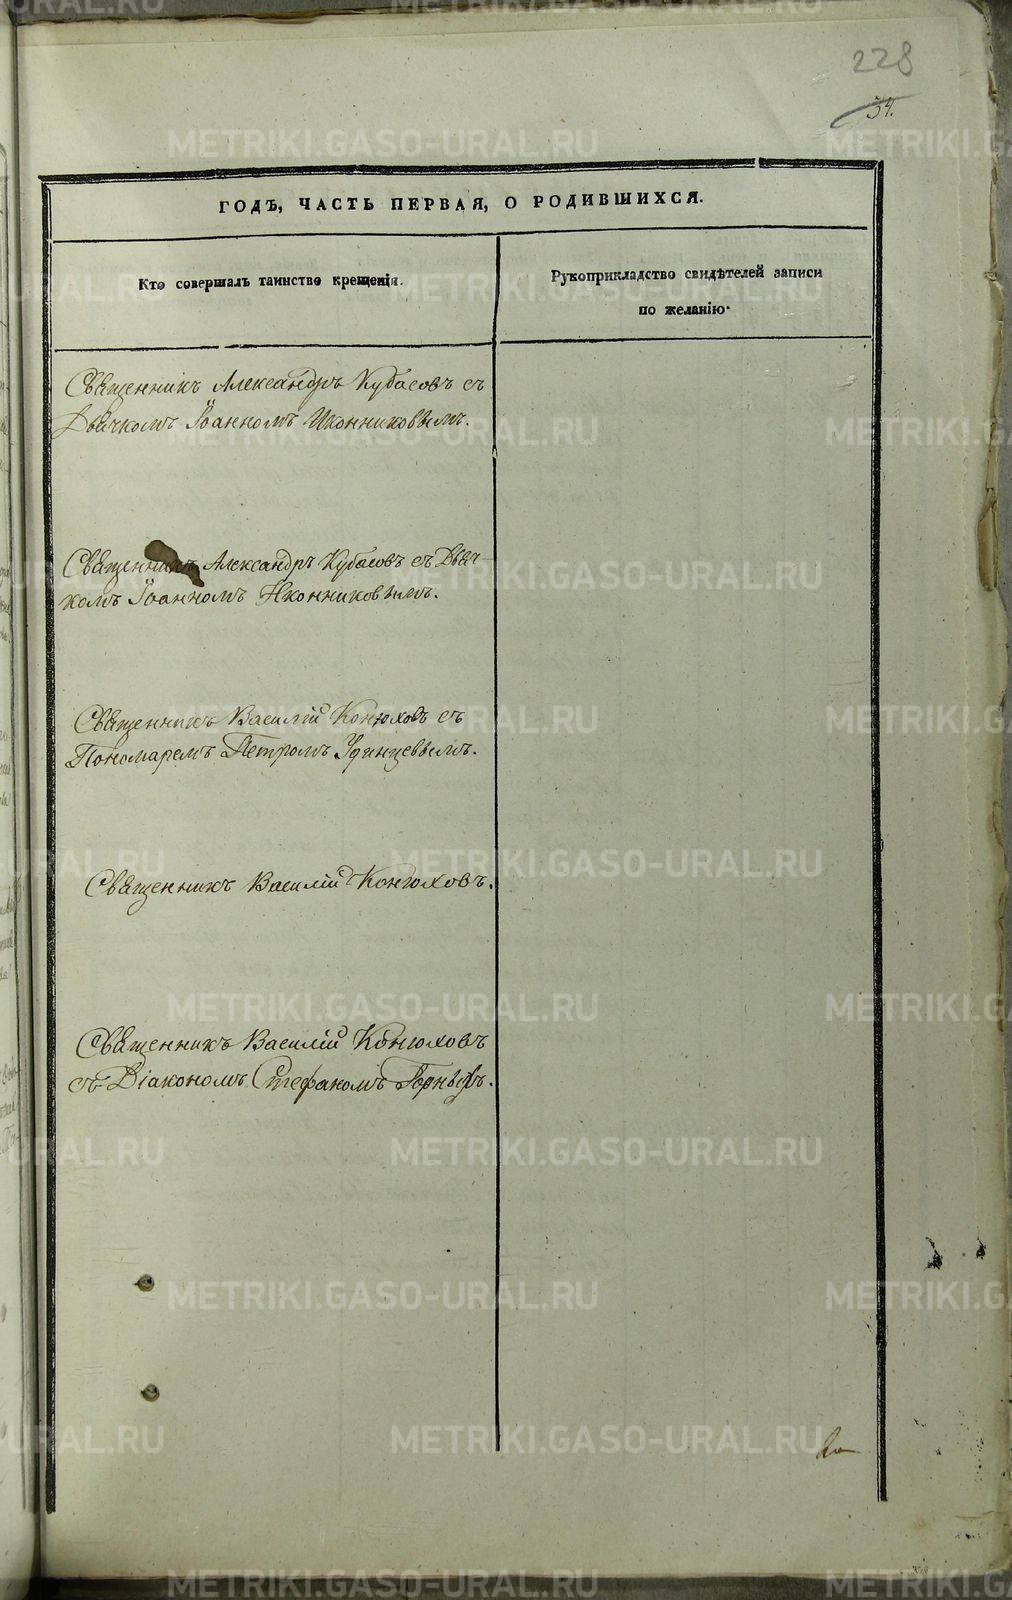 228
34.
ГОДЪ, ЧАСТЬ ПЕРВАЯ, О РОДИВШИХСЯ.
Кто совершалъ таинство крещенія.
Рукоприкладство свидѣтелей записи
по желанію.
Священникъ Александръ Кубасовъ съ
Дьячкомъ Іоанномъ Иконниковымъ.
Священникъ Александръ Кубасовъ съ Дьяч-
комъ Іоанномъ Иконниковымъ.
Священникъ Василій Конюховъ съ
Пономаремъ Петромъ Удинцевымъ.
Священникъ Василій Конюховъ.
Священникъ Василій Конюховъ
съ Діакономъ Стефаномъ Горныхъ.
METRIKI.GASO-URAL.RU